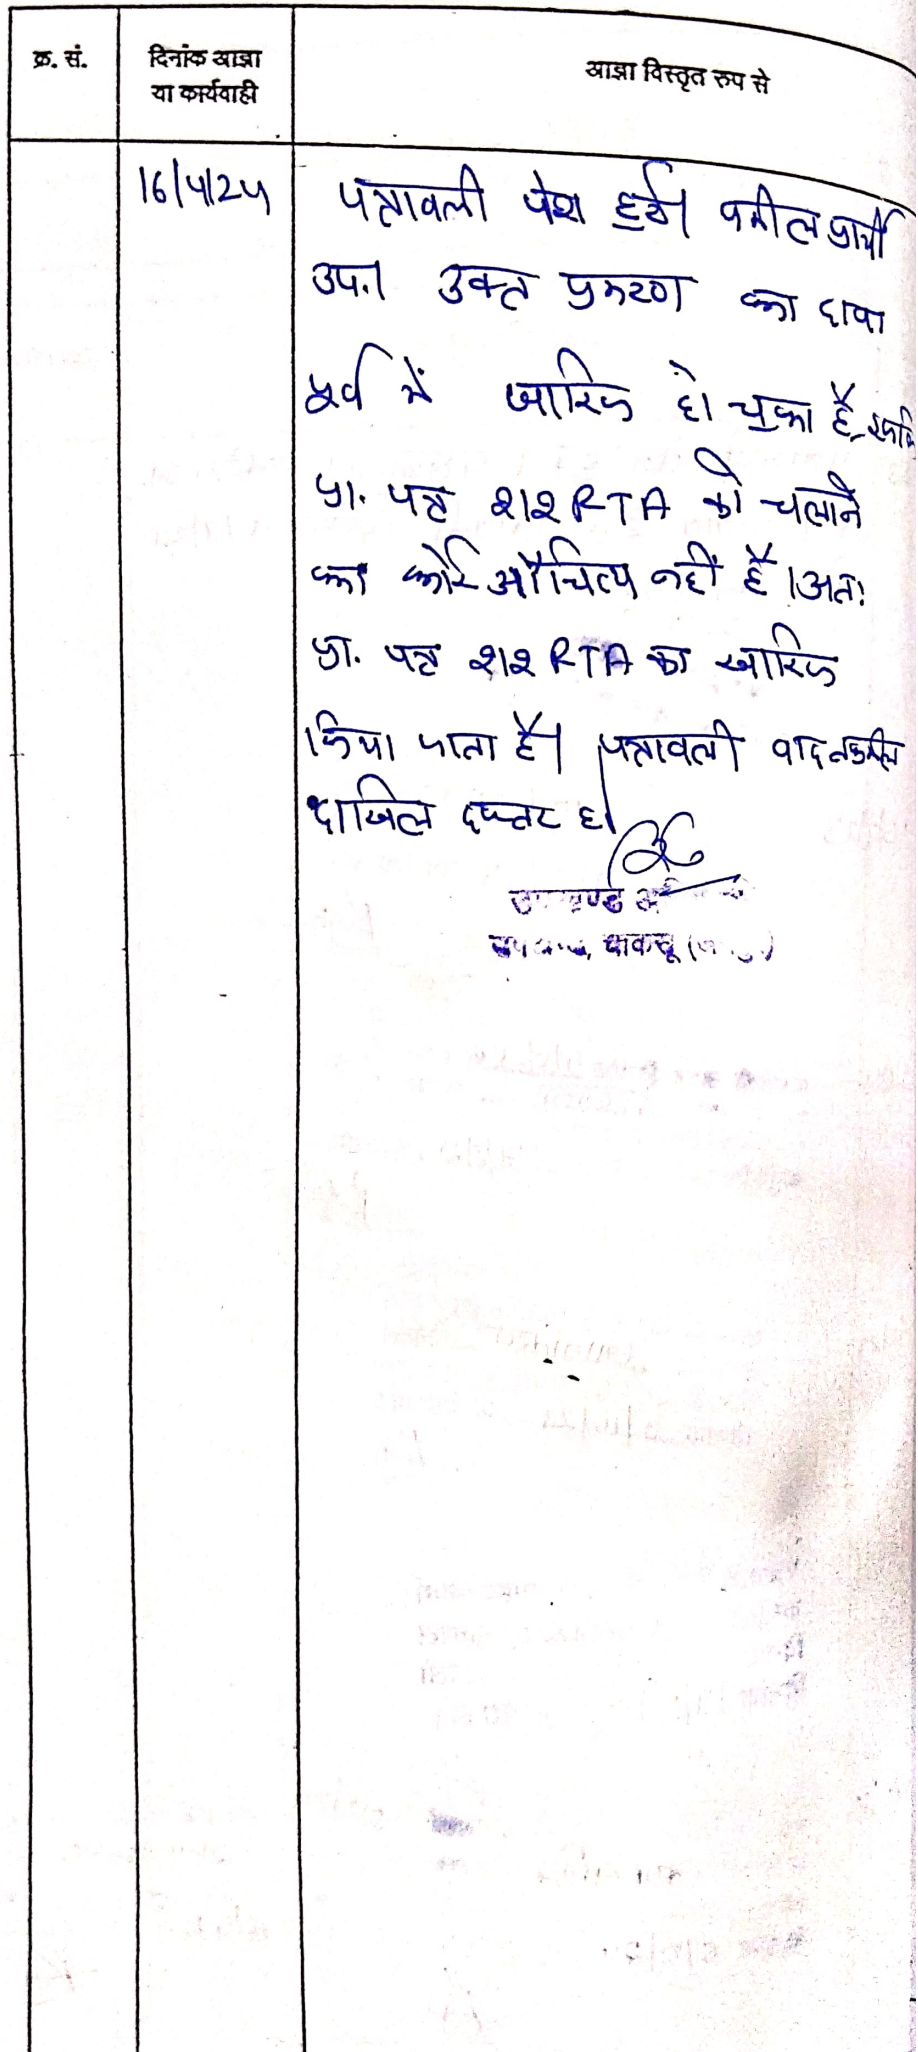 क्र. सं.
दिनांक आज्ञा
या कार्यवाही
आज्ञा विस्तृत रुप से
पत्रावली पेश हुई। वकील प्रार्थी
उप.। उक्त प्रकरण का दावा
पूर्व में खारिज हो चुका है,
प्रा. पत्र 212 RTA को चलाने
का कोई औचित्य नहीं है। अतः
प्रा. पत्र 212 RTA का खारिज
किया जाता है। पत्रावली वाद तकमील
दाखिल दफ्तर हो।
उपखण्ड
चाकसू